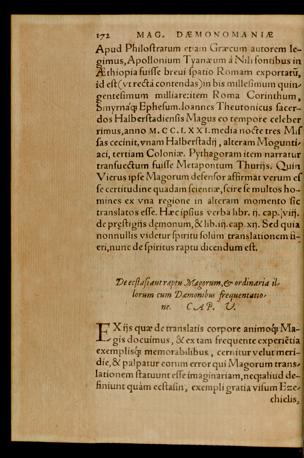 172 MAG. DÆMONOMANIÆ
Apud Philostratum etiam Græcum autorem le-
gimus, Apollonium Tyanæum à Nili fontibus in
Æthiopia fuisse breui spatio Romam exportatũ,
id est (vt rectà contendas) in bis millesimum quin-
gentesimum milliare: item Roma Corinthum,
Smyrnáq; Ephesum. Ioannes Theutonicus sacer-
dos Halberstadiensis Magus eo tempore celeber
rimus, anno M. CC. LXXI. media nocte tres Mis
sas cecinit, vnam Halberstadij, alteram Mogunti-
aci, tertiam Coloniæ. Pythagoram item narratur
transuectum fuisse Metapontum Thurijs. Quin
Vierus ipse Magorum defensor affirmat verum es
se certitudine quadam scientiæ, scire se multos ho-
mines ex vna regione in alteram momento sic
translatos esse. Hæc ipsius verba libr. ij. cap. viij.
de præstigijs dęmonum, & lib. iij. cap. xij. Sed quia
nonnullis videtur spiritu solùm translationem fi-
eri, nunc de spiritus raptu dicendum est.
De ecstasi aut raptu Magorum, & ordinaria il-
lorum cum Dæmonibus frequentatio-
ne. CAP. V.
EX ijs quæ de translatis corpore animoq; Ma-
gis docuimus, & ex tam frequente experiẽtia
exemplisq; memorabilibus, cernitur velut meri-
die, & palpatur eorum error qui Magorum trans-
lationem statuunt esse imaginariam, neq; aliud de-
finiunt quàm ecstasin, exempli gratia visum Eze-
chielis,